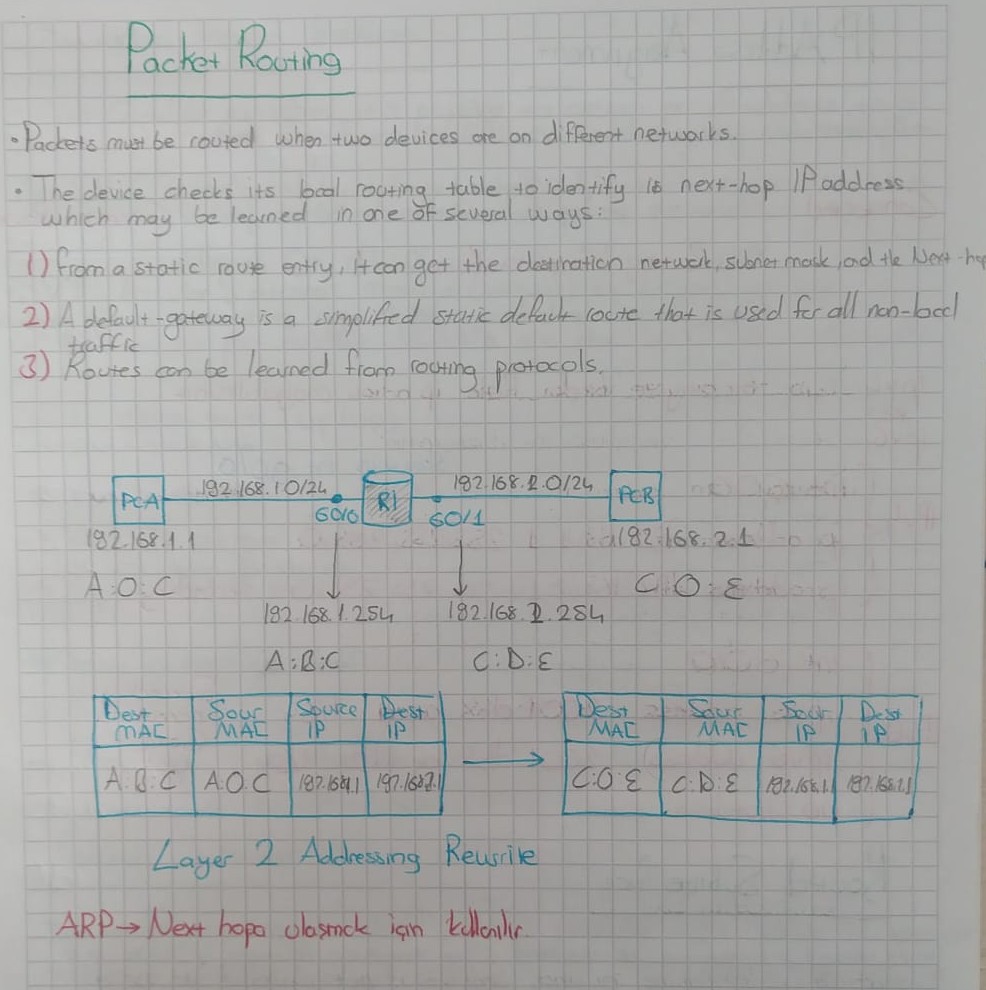 Packet Routing
• Packets must be routed when two devices are on different networks.
• The device checks its local routing table to identify is next-hop IP address
which may be learned in one of several ways:
1) From a static route entry, it can get the destination network, subnet mask, and the Next-hop
2) A default-gateway is a simplified static default route that is used for all non-local
traffic
3) Routes can be learned from routing protocols.
PCA 192.168.1.0/24 R1 192.168.2.0/24 PCB
G0/0 G0/1
192.168.1.1 192.168.2.1
A:O:C C:O:E
192.168.1.254 192.168.2.254
A:B:C C:D:E
Dest MAC Sour MAC Source IP Dest IP
A:B:C A:O:C 192.168.1.1
Dest MAC Sour MAC Sour IP Dest IP
C:O:E C:D:E
Layer 2 Addressing Rewrite
ARP → Next hopa ulaşmak için kullanılır.